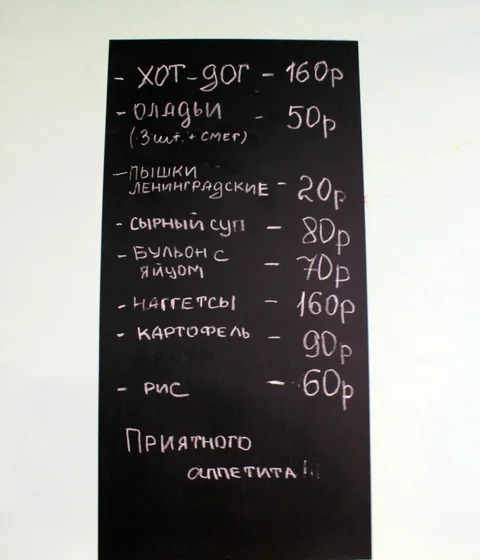 - ХОТ-ДОГ - 160р
- ОЛАДЬИ - 50р
(3 шт. + СМЕТ)
- ПЫШКИ
ЛЕНИНГРАДСКИЕ - 20р
- СЫРНЫЙ СУП - 80р
- БУЛЬОН С
ЯЙЦОМ - 70р
- НАГГЕТСЫ - 160р
- КАРТОФЕЛЬ - 90р
- РИС - 60р
ПРИЯТНОГО
АППЕТИТА!!!